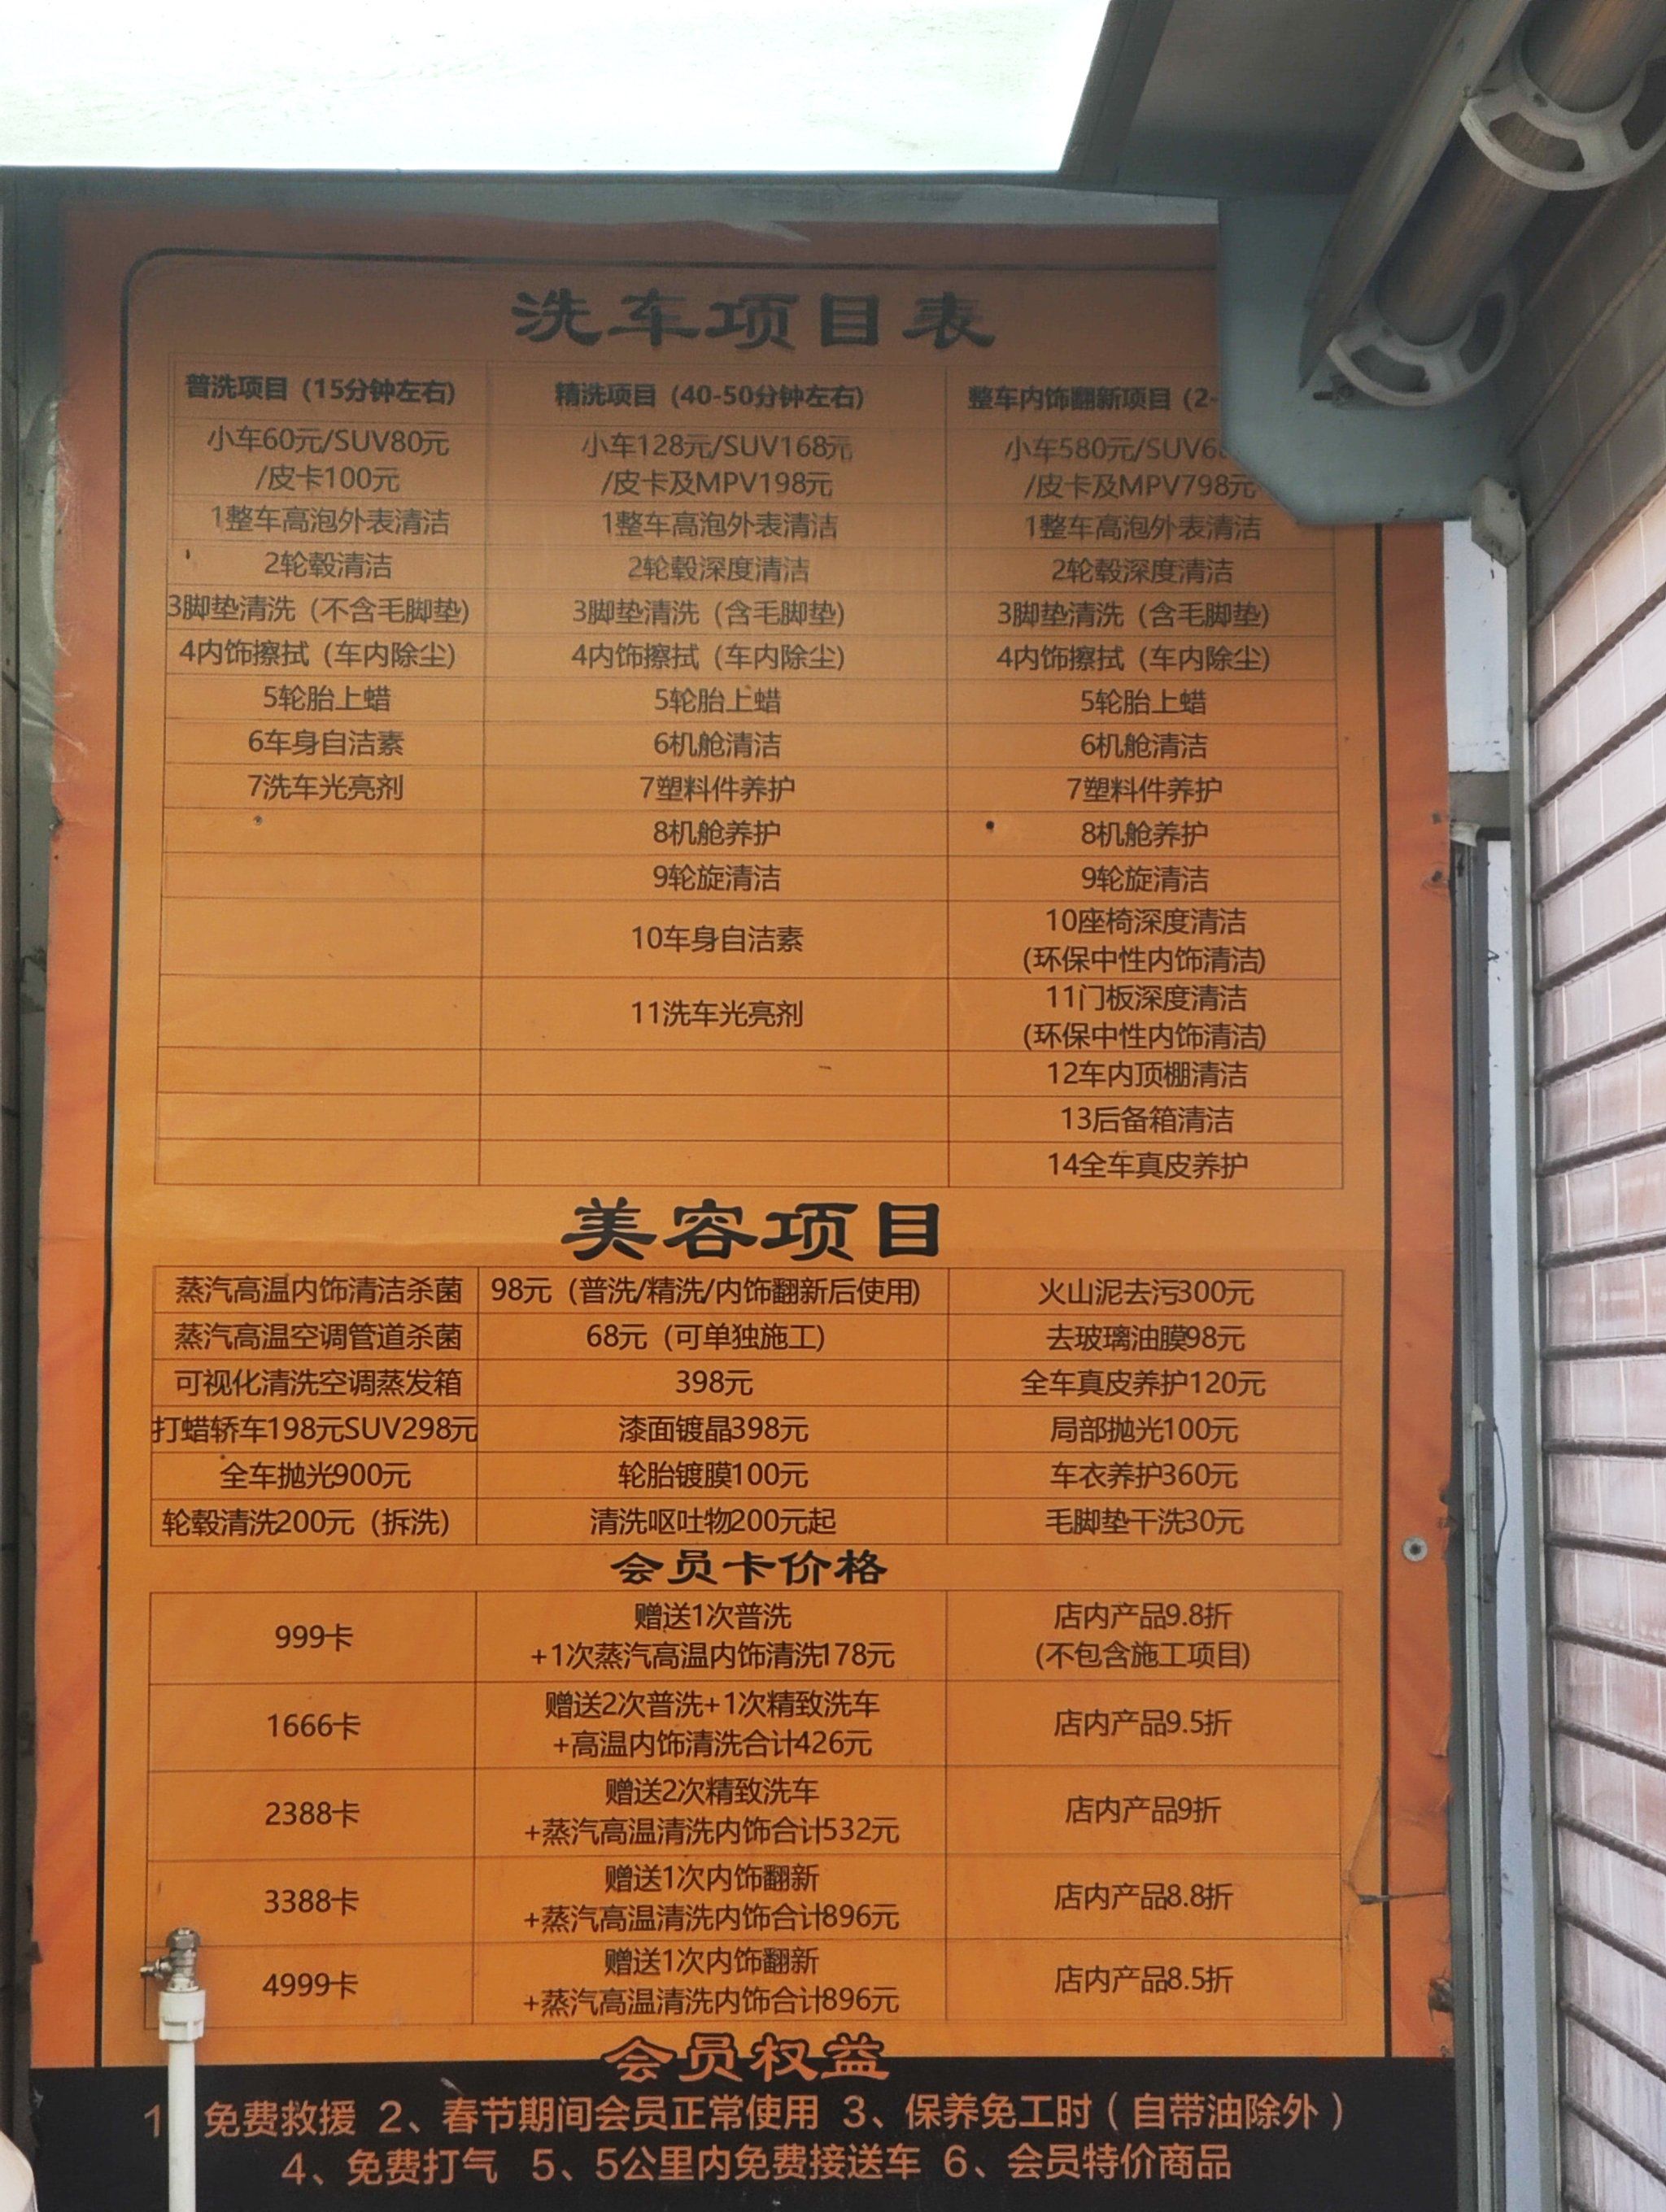 洗车项目表
普洗项目（15分钟左右）
精洗项目（40-50分钟左右）
整车内饰翻新项目（2-
小车60元/SUV80元
/皮卡100元
小车128元/SUV168元
/皮卡及MPV198元
小车580元/SUV6
/皮卡及MPV798元
1整车高泡外表清洁
1整车高泡外表清洁
1整车高泡外表清洁
2轮毂清洁
2轮毂深度清洁
2轮毂深度清洁
3脚垫清洗（不含毛脚垫）
3脚垫清洗（含毛脚垫）
3脚垫清洗（含毛脚垫）
4内饰擦拭（车内除尘）
4内饰擦拭（车内除尘）
4内饰擦拭（车内除尘）
5轮胎上蜡
5轮胎上蜡
5轮胎上蜡
6车身自洁素
6机舱清洁
6机舱清洁
7洗车光亮剂
7塑料件养护
7塑料件养护
8机舱养护
8机舱养护
9轮旋清洁
9轮旋清洁
10车身自洁素
10座椅深度清洁
(环保中性内饰清洁)
11洗车光亮剂
11门板深度清洁
(环保中性内饰清洁)
12车内顶棚清洁
13后备箱清洁
14全车真皮养护
美容项目
蒸汽高温内饰清洁杀菌
98元（普洗/精洗/内饰翻新后使用）
火山泥去污300元
蒸汽高温空调管道杀菌
68元（可单独施工）
去玻璃油膜98元
可视化清洗空调蒸发箱
398元
全车真皮养护120元
打蜡轿车198元SUV298元
漆面镀晶398元
局部抛光100元
全车抛光900元
轮胎镀膜100元
车衣养护360元
轮毂清洗200元（拆洗）
清洗呕吐物200元起
毛脚垫干洗30元
会员卡价格
999卡
赠送1次普洗
+1次蒸汽高温内饰清洗178元
店内产品9.8折
(不包含施工项目)
1666卡
赠送2次普洗+1次精致洗车
+高温内饰清洗合计426元
店内产品9.5折
2388卡
赠送2次精致洗车
+蒸汽高温清洗内饰合计532元
店内产品9折
3388卡
赠送1次内饰翻新
+蒸汽高温清洗内饰合计896元
店内产品8.8折
4999卡
赠送1次内饰翻新
+蒸汽高温清洗内饰合计896元
店内产品8.5折
会员权益
1 免费救援 2、春节期间会员正常使用 3、保养免工时（自带油除外）
4、免费打气 5、5公里内免费接送车 6、会员特价商品